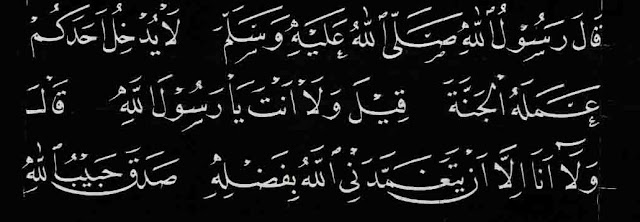 قَالَ رَسُوْلُ اللهِ صَلَّى اللهُ عَلَيْهِ وَسَلَّمَ لَا يُدْخِلُ اَحَدَكُمْ
عَمَلُهُ الْجَنَّةَ قِيْلَ وَلَا اَنْتَ يَا رَسُوْلَ اللهِ قَالَ
وَلَآ اَنَا اِلَّا اَنْ يَتَغَمَّدَنِيَ اللهُ بِفَضْلِهِ صَدَقَ حَبِيْبُ اللهِ